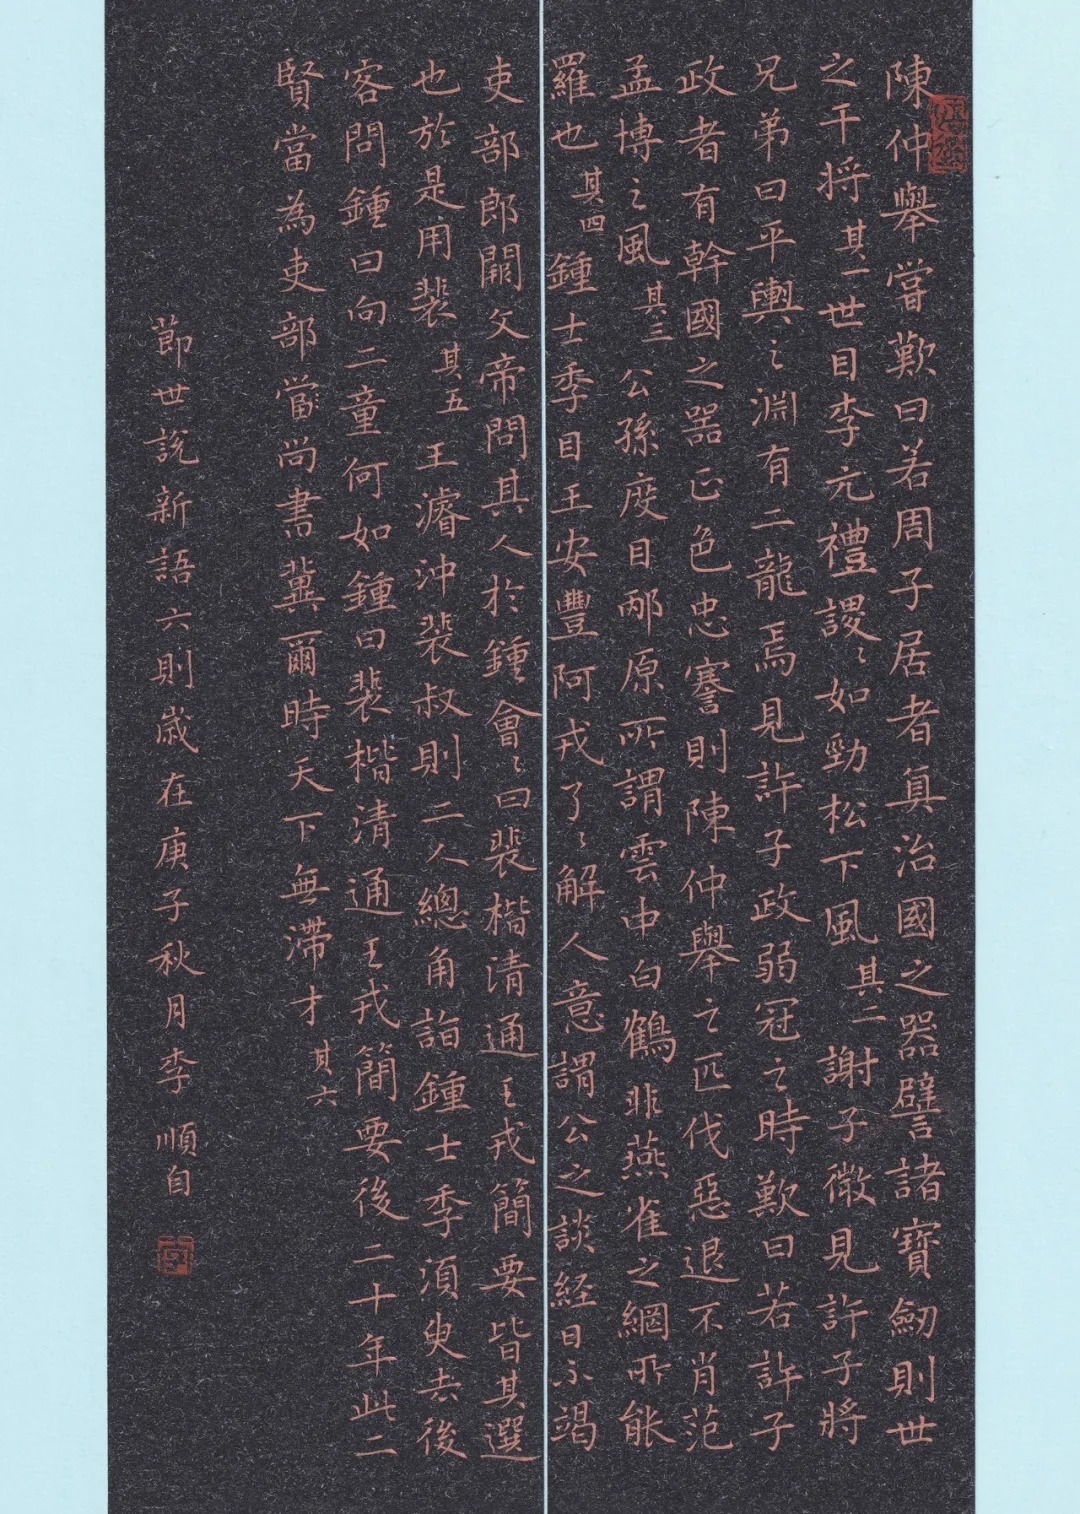 陳仲舉嘗歎曰若周子居者真治國之器譬諸寶劒則世
之干将其一世目李元禮謖〻如勁松下風其二謝子微見許子將
兄弟曰平輿之淵有二龍焉見許子政弱冠之時歎曰若許子
政者有幹國之器正色忠謇則陳仲舉之匹伐惡退不肖范
孟博之風其三公孫度目邴原所謂雲中白鶴非燕雀之網所能
羅也其四鍾士季目王安豐阿戎了〻解人意謂公之談経日不竭
吏部郎闕文帝問其人於鍾會〻曰裴楷清通王戎簡要皆其選
也於是用裴其五王濬沖裴叔則二人總角詣鍾士季須臾去後
客問鍾曰向二童何如鍾曰裴楷清通王戎簡要後二十年此二
賢當為吏部當尚書冀爾時天下無滯才其六
節世説新語六則歲在庚子秋月李順自